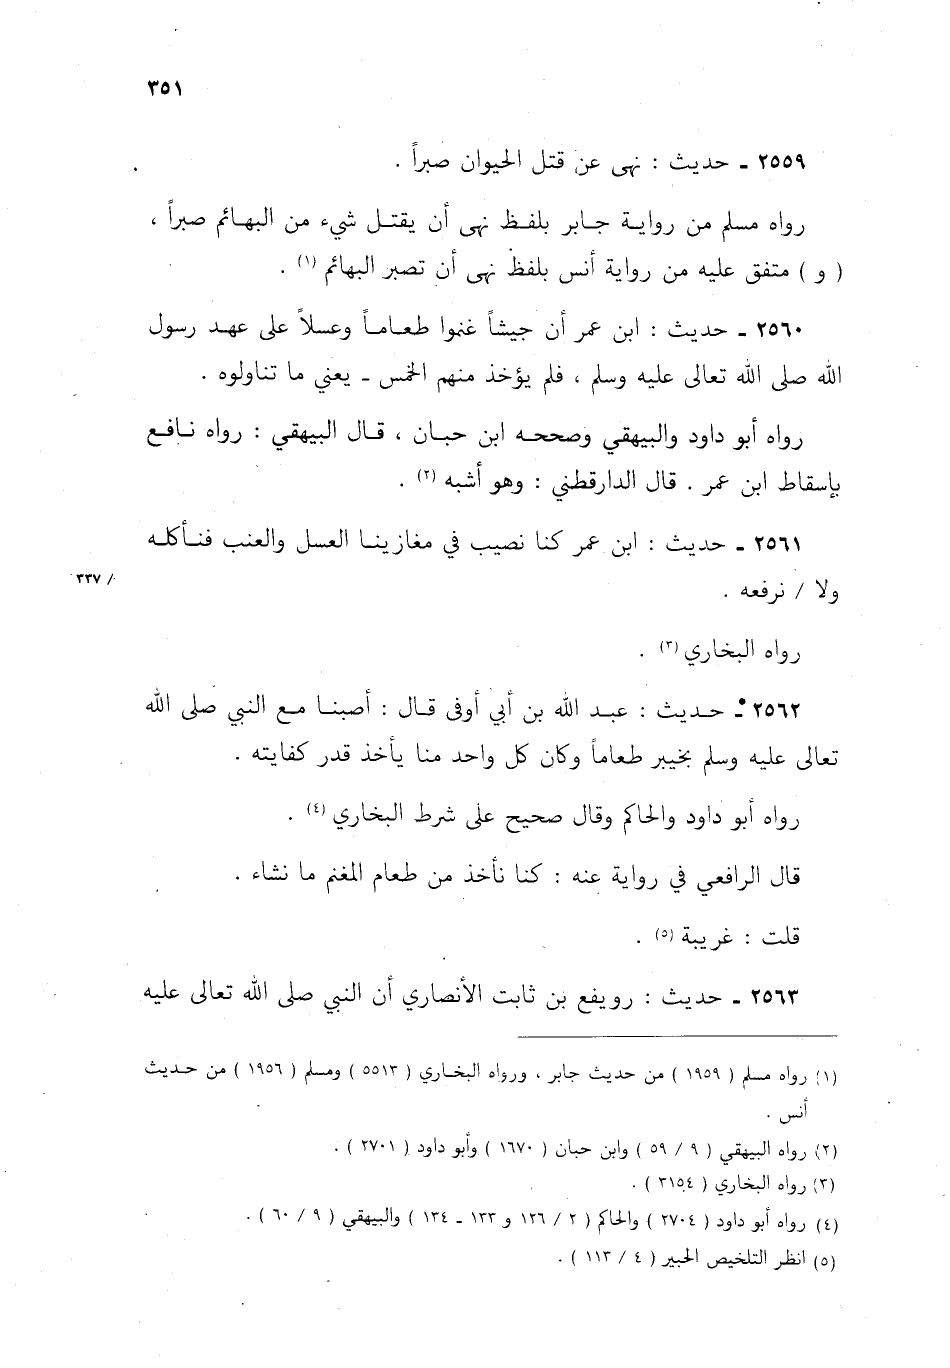 ٣٥١
٢٥٥٩ ـ حديث : نهى عن قتل الحيوان صبراً .
رواه مسلم من رواية جابر بلفظ نهى أن يقتل شيء من البهائم صبراً ،
( و ) متفق عليه من رواية أنس بلفظ نهى أن تصبر البهائم (١) .
٢٥٦٠ ـ حديث : ابن عمر أن جيشاً غنموا طعاماً وعسلاً على عهد رسول
الله صلى الله تعالى عليه وسلم ، فلم يؤخذ منهم الخمس ـ يعني ما تناولوه .
رواه أبو داود والبيهقي وصححه ابن حبان ، قال البيهقي : رواه نافع
بإسقاط ابن عمر . قال الدارقطني : وهو أشبه (٢) .
٢٥٦١ ـ حديث : ابن عمر كنا نصيب في مغازينا العسل والعنب فنأكله
ولا / نرفعه .
/ ٣٣٧
رواه البخاري (٣) .
٢٥٦٢ ـ حديث : عبد الله بن أبي أوفى قال : أصبنا مع النبي صلى الله
تعالى عليه وسلم بخيبر طعاماً وكان كل واحد منا يأخذ قدر كفايته .
رواه أبو داود والحاكم وقال صحيح على شرط البخاري (٤) .
قال الرافعي في رواية عنه : كنا نأخذ من طعام المغنم ما نشاء .
قلت : غريبة (٥) .
٢٥٦٣ ـ حديث : رويفع بن ثابت الأنصاري أن النبي صلى الله تعالى عليه
(١) رواه مسلم ( ١٩٥٩ ) من حديث جابر ، ورواه البخاري ( ٥٥١٣ ) ومسلم ( ١٩٥٦ ) من حديث
أنس .
(٢) رواه البيهقي ( ٩ / ٥٩ ) وابن حبان ( ١٦٧٠ ) وأبو داود ( ٢٧٠١ ) .
(٣) رواه البخاري ( ٣١٥٤ ) .
(٤) رواه أبو داود ( ٢٧٠٤ ) والحاكم ( ٢ / ١٢٦ و ١٣٣ ـ ١٣٤ ) والبيهقي ( ٩ / ٦٠ ) .
(٥) انظر التلخيص الحبير ( ٤ / ١١٣ ) .